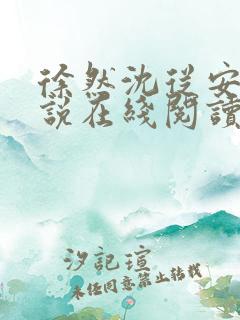 徐然沈从安
說在綫閱讀
汐記瑄
未经同意禁止转载